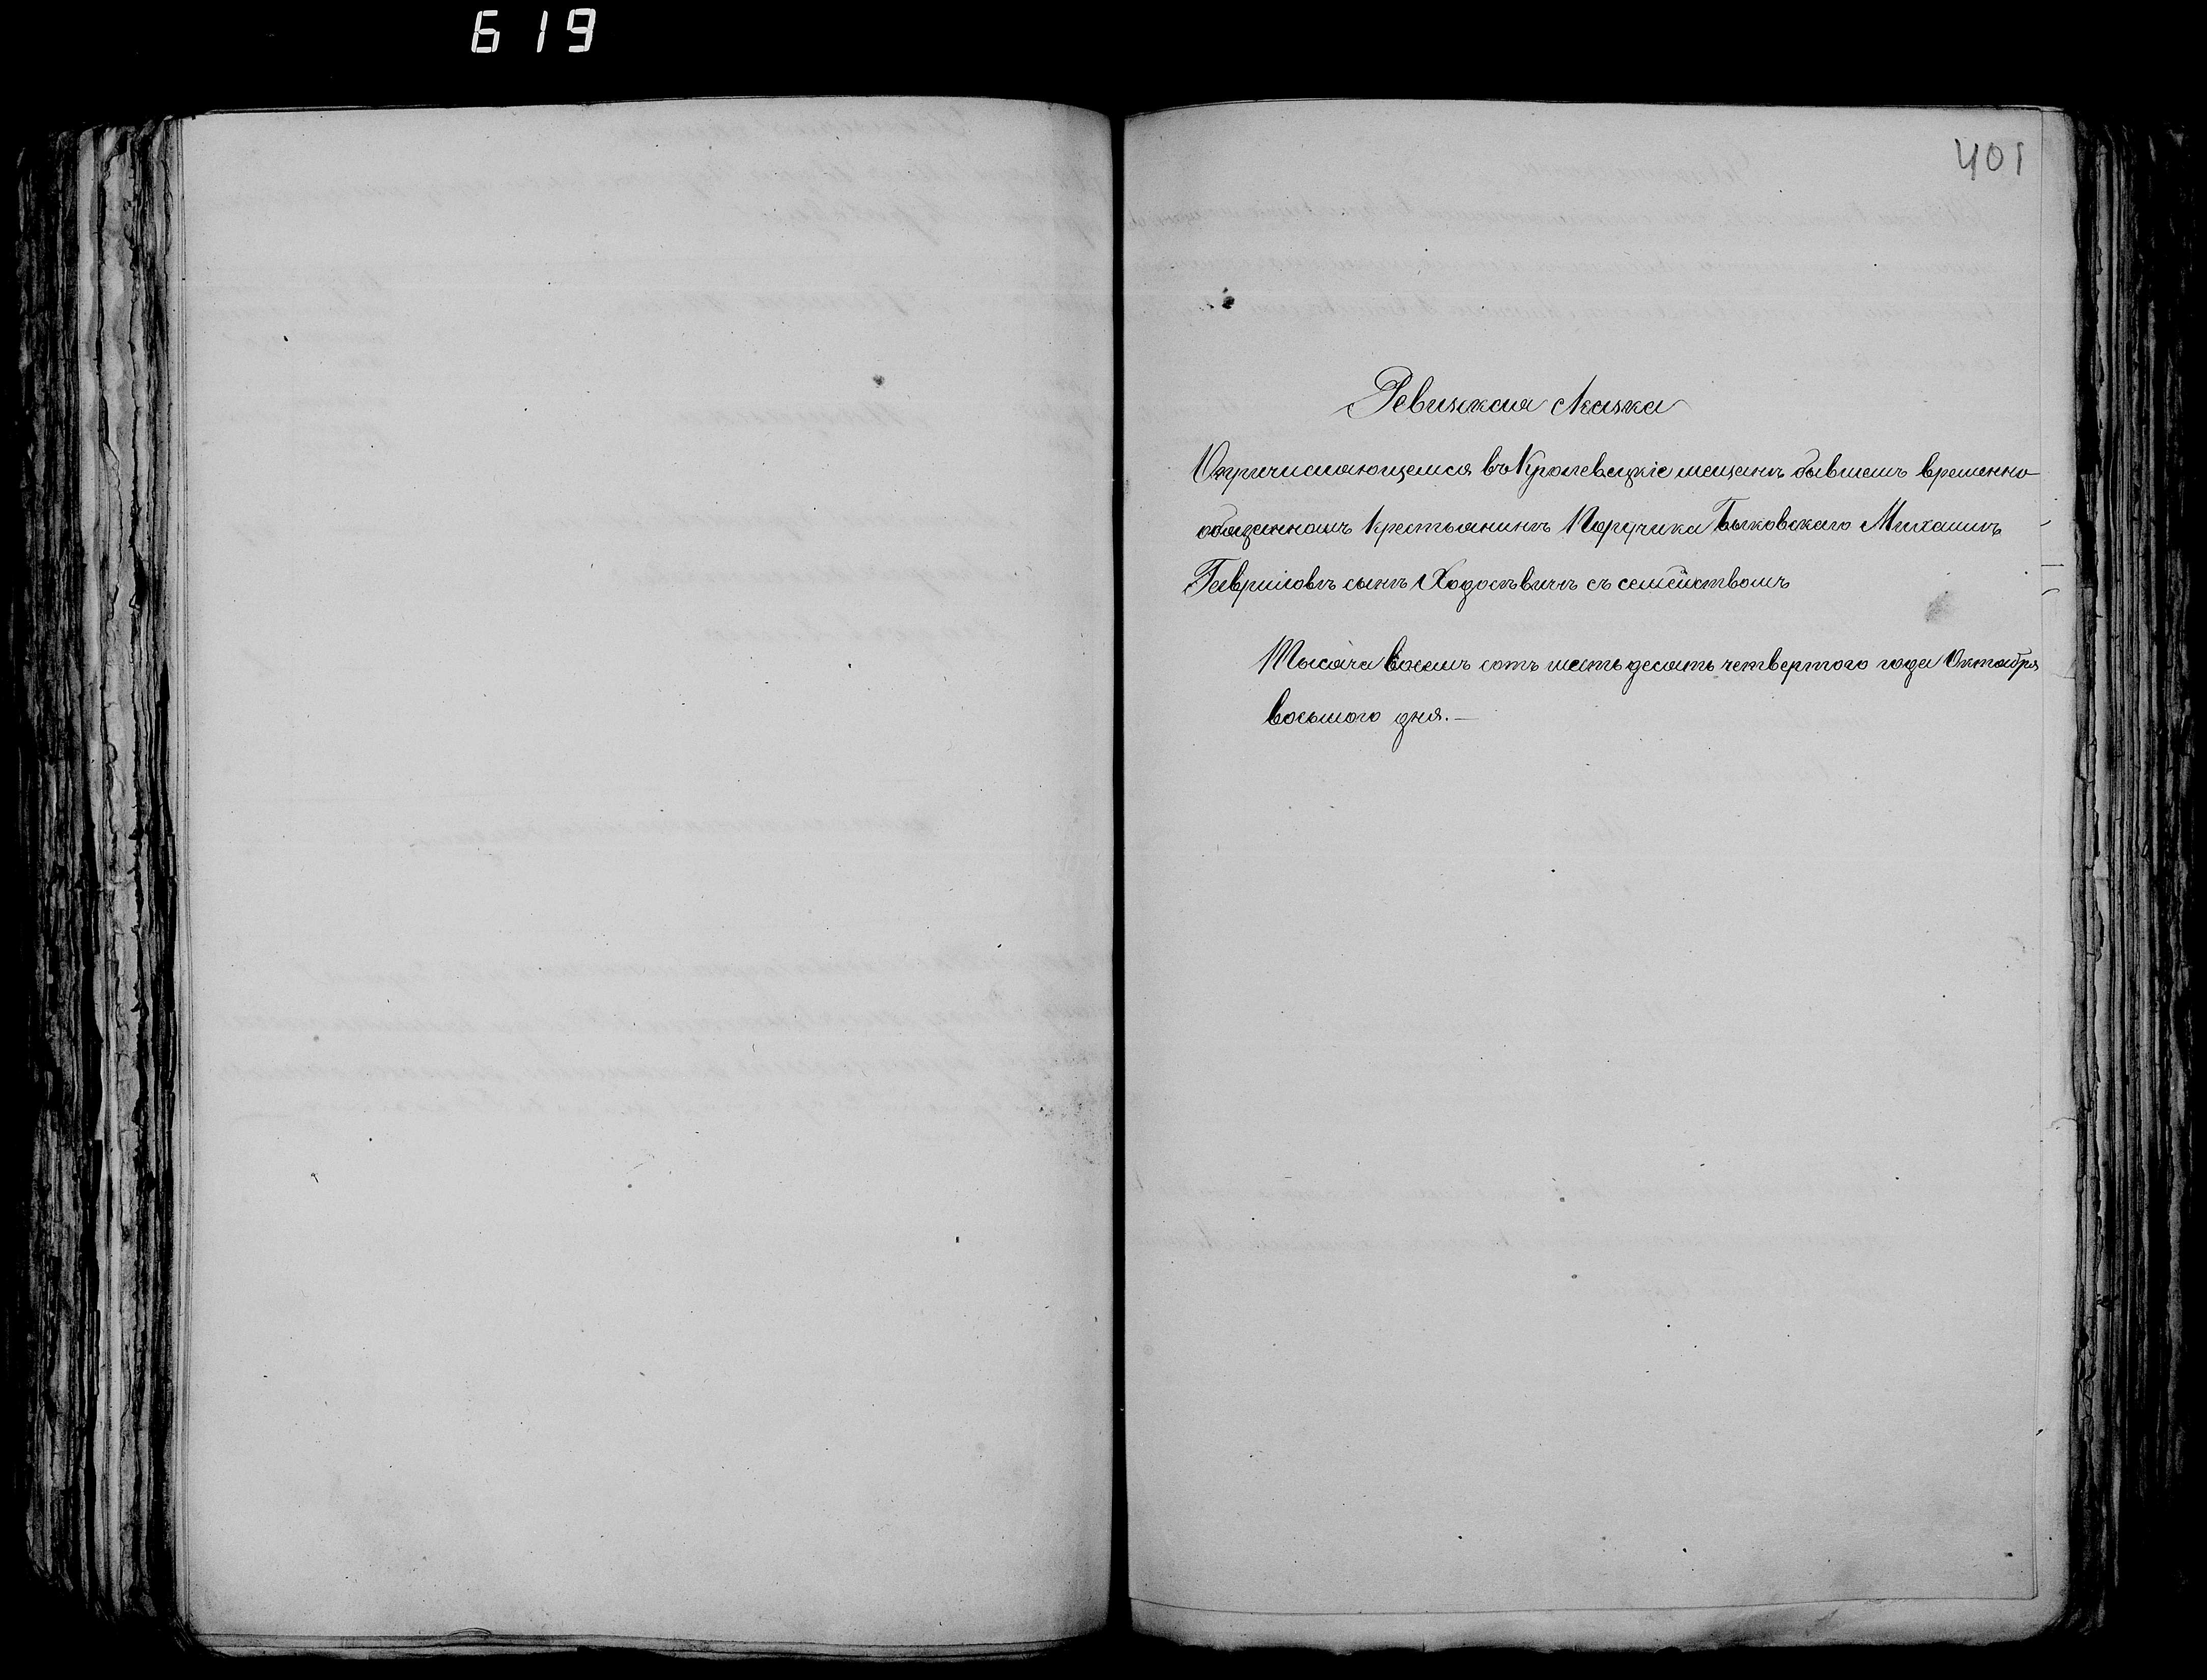 619
401
Ревизская Сказка
О причисляющемся въ Кролевецкіе мещане бывшемъ временно
обязанномъ крестьянинѣ Поручика Быковскаго Михаилѣ
Гавриловѣ сынѣ Ходосѣвичѣ съ семействомъ
Тысяча восемь сотъ шестьдесятъ четвертого года Октября
восьмого дня.—